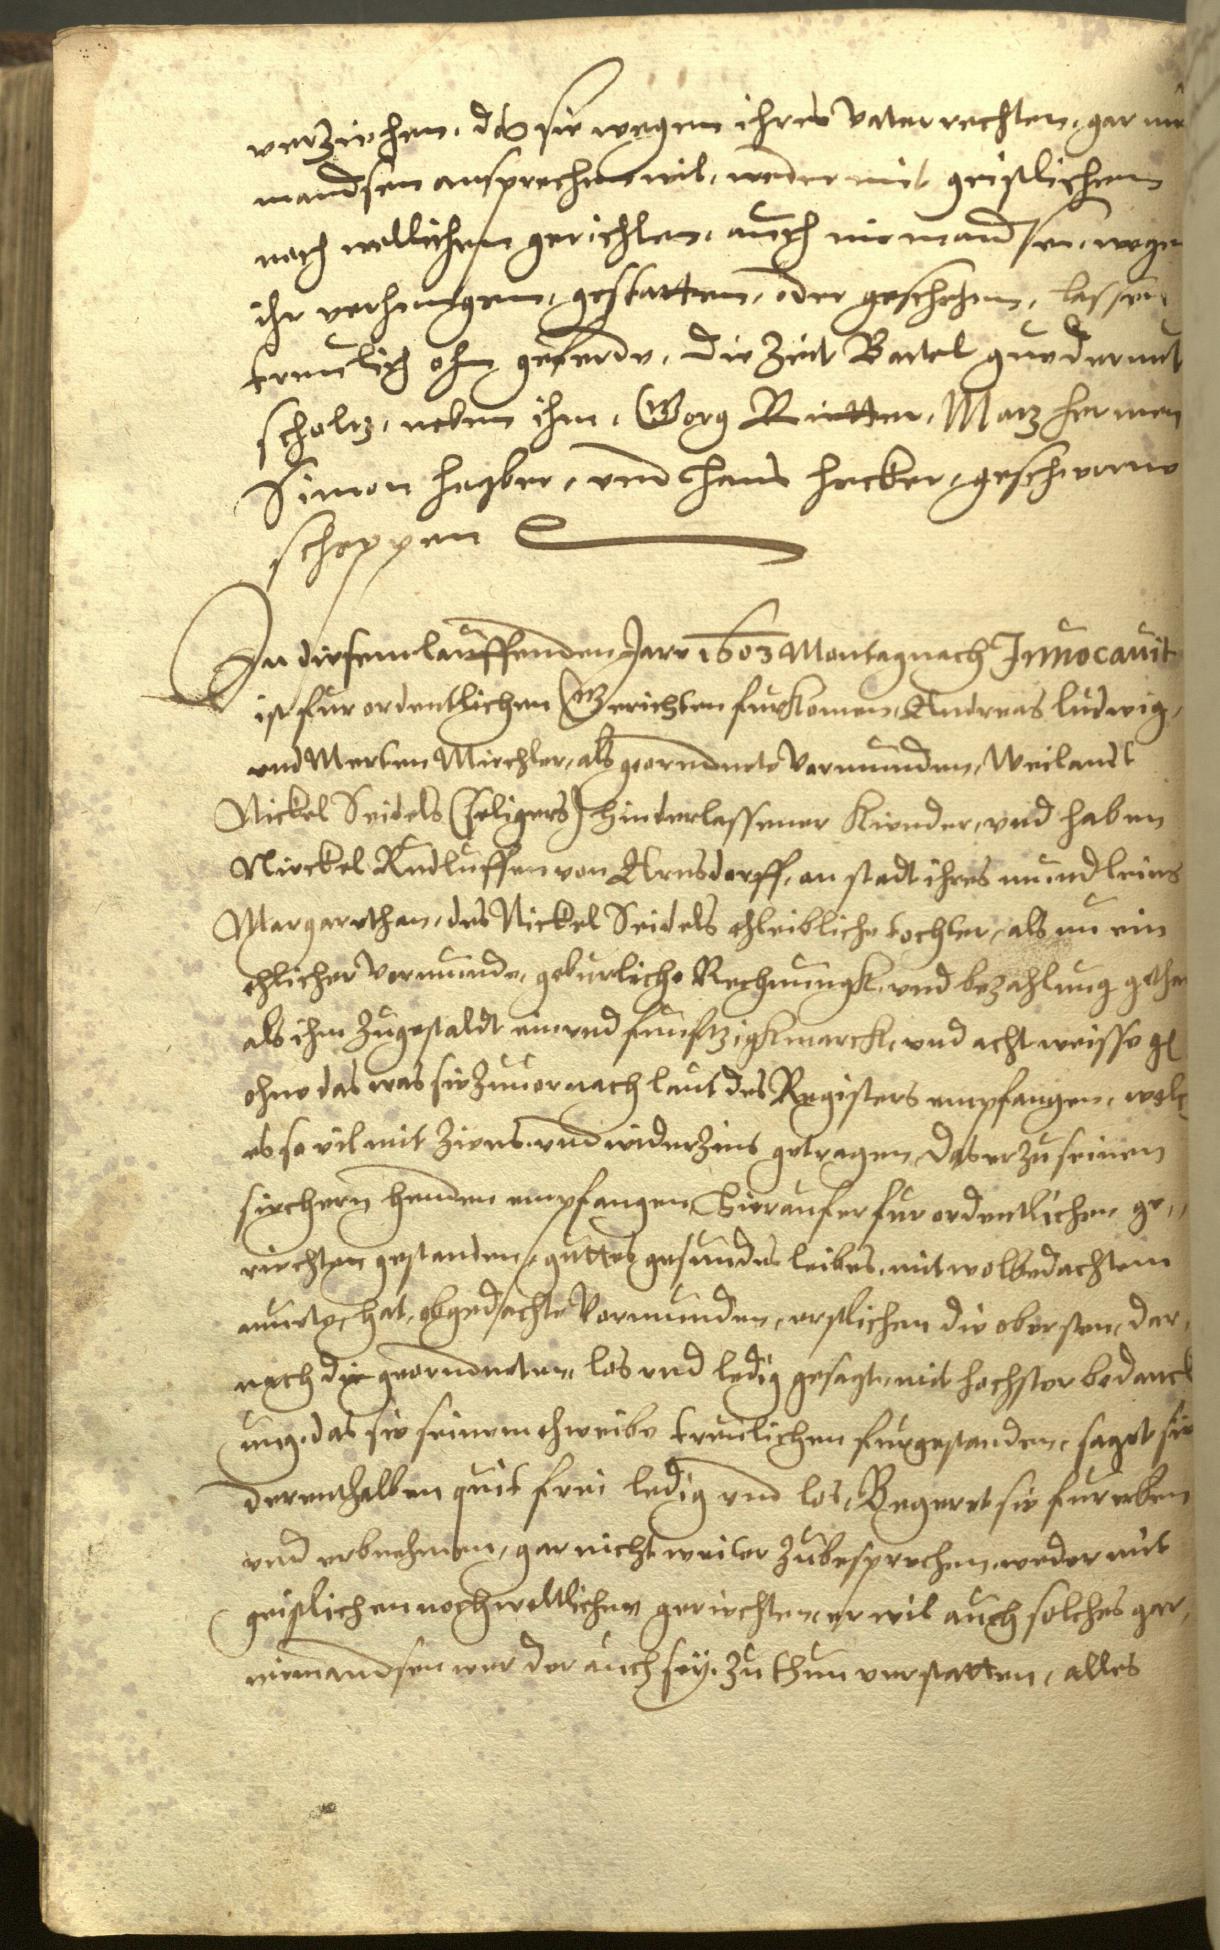 verziehen, das sie wegen ihres Vater rechten, gar nie
mandsen ansprechen wil, weder mit geistlichen
noch weltlichen gerichten, auch niemandsen, wegen
ihr verhengen, gestatten, oder geschehen, lassen
treulich ohn geferde, die Zeit Bartel
scholtz, neben ihm, Gorg Rietter, Matz hermen
Simon und Hans Hecker, geschworne
scheppen
In diesem lauffenden Jare 1603 Montag nach Innocauit
ist fur ordentlichen Gerichten furkomen, Andreas Ludwig,
und Merten Mirchler, als geordnete Vormunden, Weilandt
Nickel Seidels (seligers) hinterlassener Kiender, und haben
Nickel Rudluffen von Arnsdorff, an stadt ihres mundleins
Margarethan, des Nickel Seidels ehleibliche tochter, als nu ein
ehlicher Vormunde, geburliche Rechnungk, und bezahlung gethan
als ihm zugestaldt ein und funftzigk marck, und acht weisse gl
ohne das was sie zuuor nach laut des Registers empfangen, welch
es so vil mit Ziens und widerzins getragen, Das er zu seinen
siechern henden empfangen, Hierauf er fur ordentlichen ge,,
riechten gestanden, guttes gesundes leibes, mit wolbedachtem
mutte, hat, obgedachte Vormunden, erstlichen die obersten, dar,
nach die geordneten, los und ledig gesagt, mit hochster bedanck
ung, das sie seinem ehweibe treulichen furgestanden, saget sie
derenthalben quit frei ledig und los, Begeret sie fur erben
und erbnehmen, gar nicht weiter zubesprechen, weder mit
geistlichen noch weltlichen geriechten, er wil auch solches gar,
niemandsen wer der auch sey, zu thun verstatten, alles